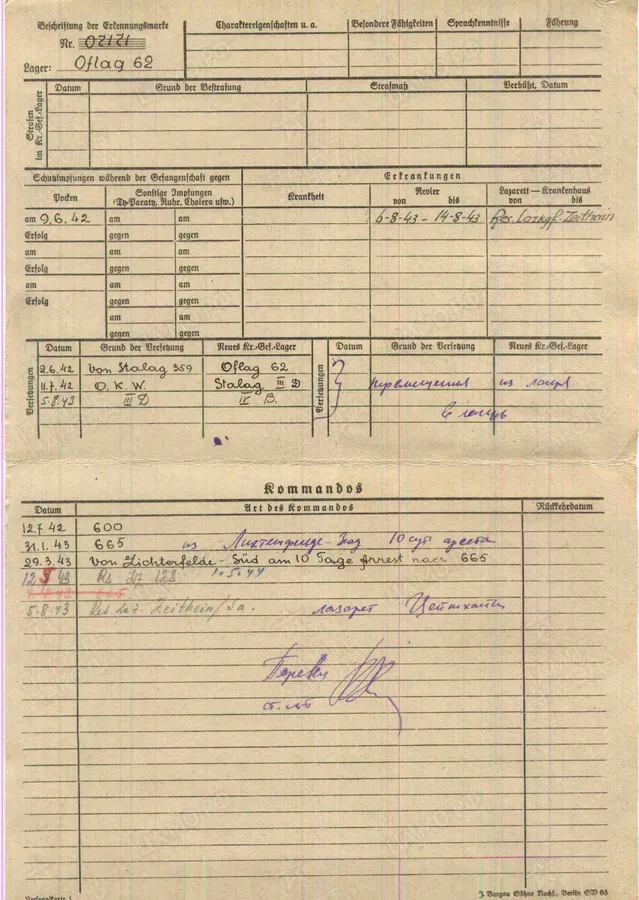 Beschriftung der Erkennungsmarke
Nr. 07171
Lager: Oflag 62
Charaktereigenschaften u. a.
Besondere Fähigkeiten
Sprachkenntnisse
Führung
Strafen im Kr.-Gef.-Lager
Datum Grund der Bestrafung Strafmaß Verbüßt, Datum
Schutzimpfungen während der Gefangenschaft gegen
Erkrankungen
Pocken Sonstige Impfungen (Ty-Paraty, Ruhr, Cholera usw.) Krankheit Revier von bis Lazarett — Krankenhaus von bis
am 9.6.42 am am 6-8-43 - 14-8-43 Zeithain
Erfolg gegen gegen
am am am
Erfolg gegen gegen
am am am
Erfolg gegen gegen
am am
gegen gegen
Versetzungen
Datum Grund der Versetzung Neues Kr.-Gef.-Lager
2.6.42 von Stalag 359 Oflag 62
11.7.42 O.K.W. Stalag III D
5.8.43 III D IV B.
Versetzungen
Datum Grund der Versetzung Neues Kr.-Gef.-Lager
перемещения из лагеря
в лагерь
Kommandos
Datum Art des Kommandos Rückkehrdatum
12.7.42 600
31.1.43 665 из Лихтенфельде-Зюд 10 сут ареста
29.3.43 von Lichterfelde-Süd am 10 Tage Arrest nach 665
43 Rs Lz 128
665
5-8-43 Res Laz. Zeithein/Sa. лазарет Цейтхайн
ст. л-т
J. Bargou Söhne Nachf., Berlin SW 68